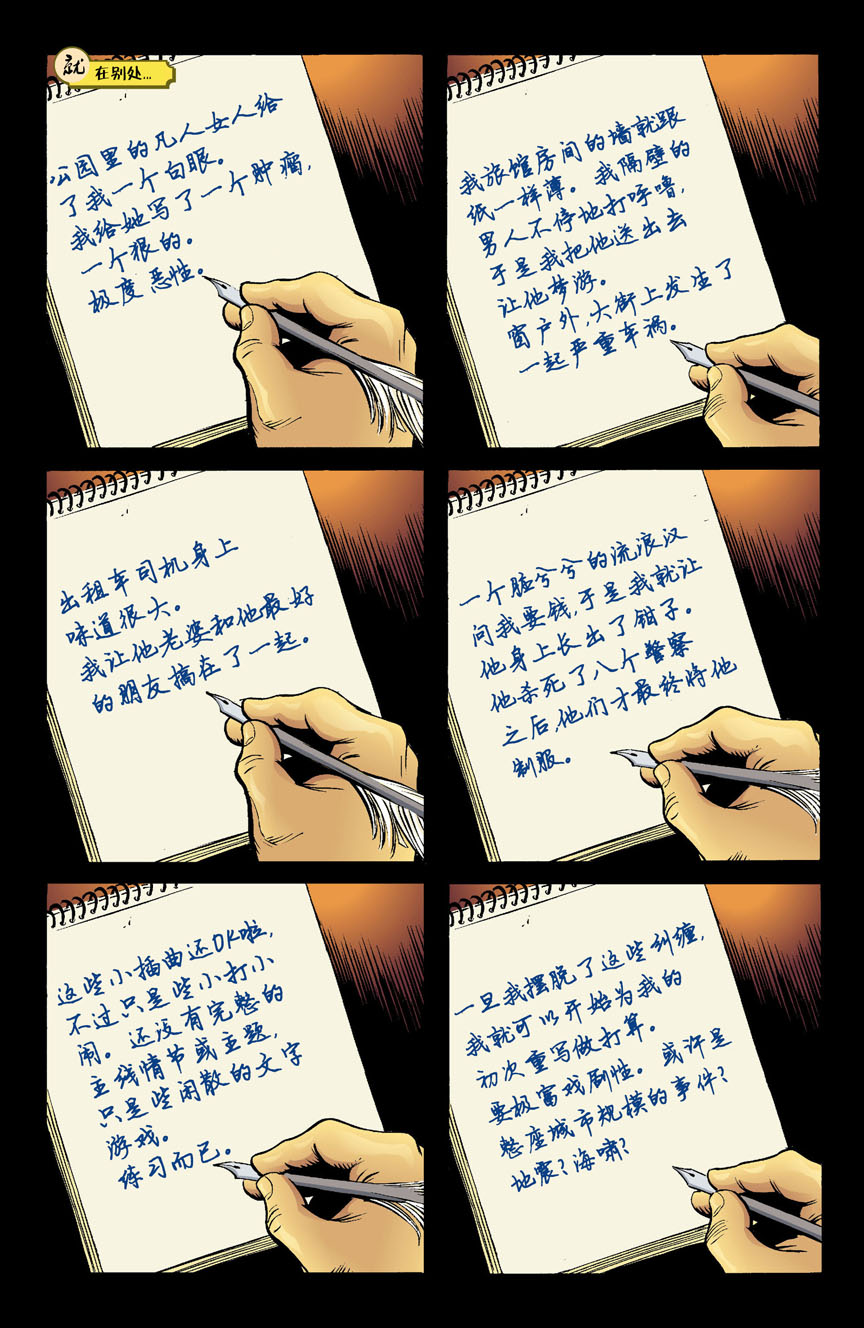 就在别处...
公园里的凡人女人给
了我一个白眼。
我给她写了一个肿瘤，
一个狠的。
极度恶性。
我旅馆房间的墙就跟
纸一样薄。我隔壁的
男人不停地打呼噜，
于是我把他送出去
让他梦游。
窗户外，大街上发生了
一起严重车祸。
出租车司机身上
味道很大。
我让他老婆和他最好
的朋友搞在了一起。
一个脏兮兮的流浪汉
问我要钱，于是我就让
他身上长出了钳子。
他杀死了八个警察
之后，他们才最终将他
制服。
这些小插曲还OK啦，
不过只是些小打小
闹。还没有完整的
主线情节或主题，
只是些闲散的文字
游戏。
练习而已。
一旦我摆脱了这些纠缠，
我就可以开始为我的
初次重写做打算。
要极富戏剧性。或许是
整座城市规模的事件？
地震？海啸？